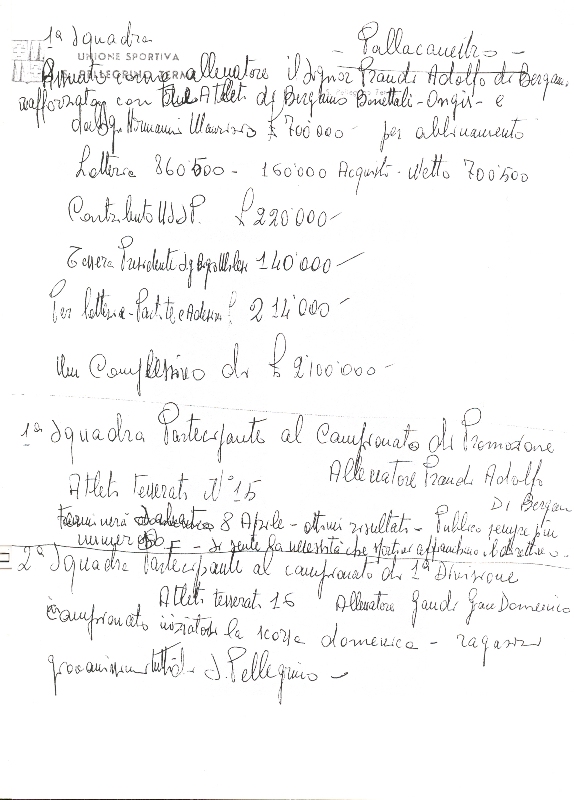 1ª Squadra
- Pallacanestro -
UNIONE SPORTIVA
S. PELLEGRINO TERME
come allenatore il Signor Prandi Adolfo di Bergamo
rafforzata con due Atleti di Bergamo - Ongis - e
dal Sig. Maurizio £ 700'000 - per abbinamento
Lotteria 860'500 - 160'000 Acquisti - Netto 700'500
Contributo U.S.S.P. £ 220'000 -
Tessera Presidente 140'000 -
Per lotteria - Partite e Adesioni £ 214'000 -
Un Complessivo di £ 2'100'000 -
1ª Squadra Partecipante al Campionato di Promozione
Allenatore Prandi Adolfo
Atleti Tesserati N° 15
Di Bergamo
Terminerà 8 Aprile - ottimi risultati - Publico sempre più
numeroso - si sente la necessità che sportivi affianchino il direttivo -
2ª Squadra Partecipante al campionato di 1ª Divisione
Atleti tesserati 16 Allenatore Gian Domenico
Campionato iniziato la scorsa domenica - ragazzi
giovanissimi tutti di S. Pellegrino -